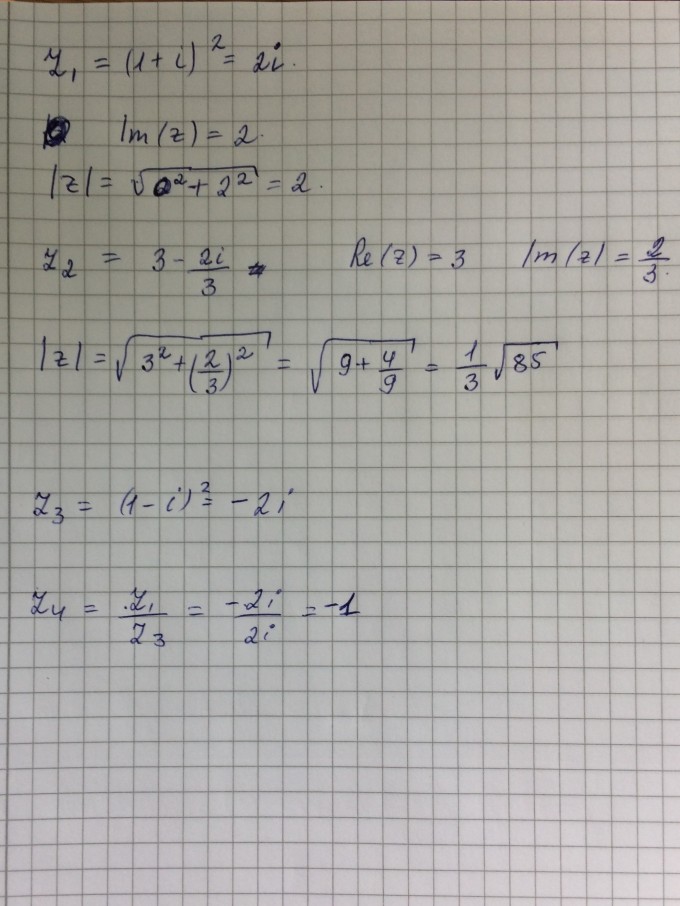 z₁ = (1+i)² = 2i.
Im(z) = 2.
|z| = √(0²+2²) = 2.
z₂ = 3 - 2i/3 Re(z) = 3 Im(z) = 2/3.
|z| = √(3²+(2/3)²) = √(9+4/9) = 1/3 √85
z₃ = (1-i)² = -2i
z₄ = z₁/z₃ = -2i/2i = -1